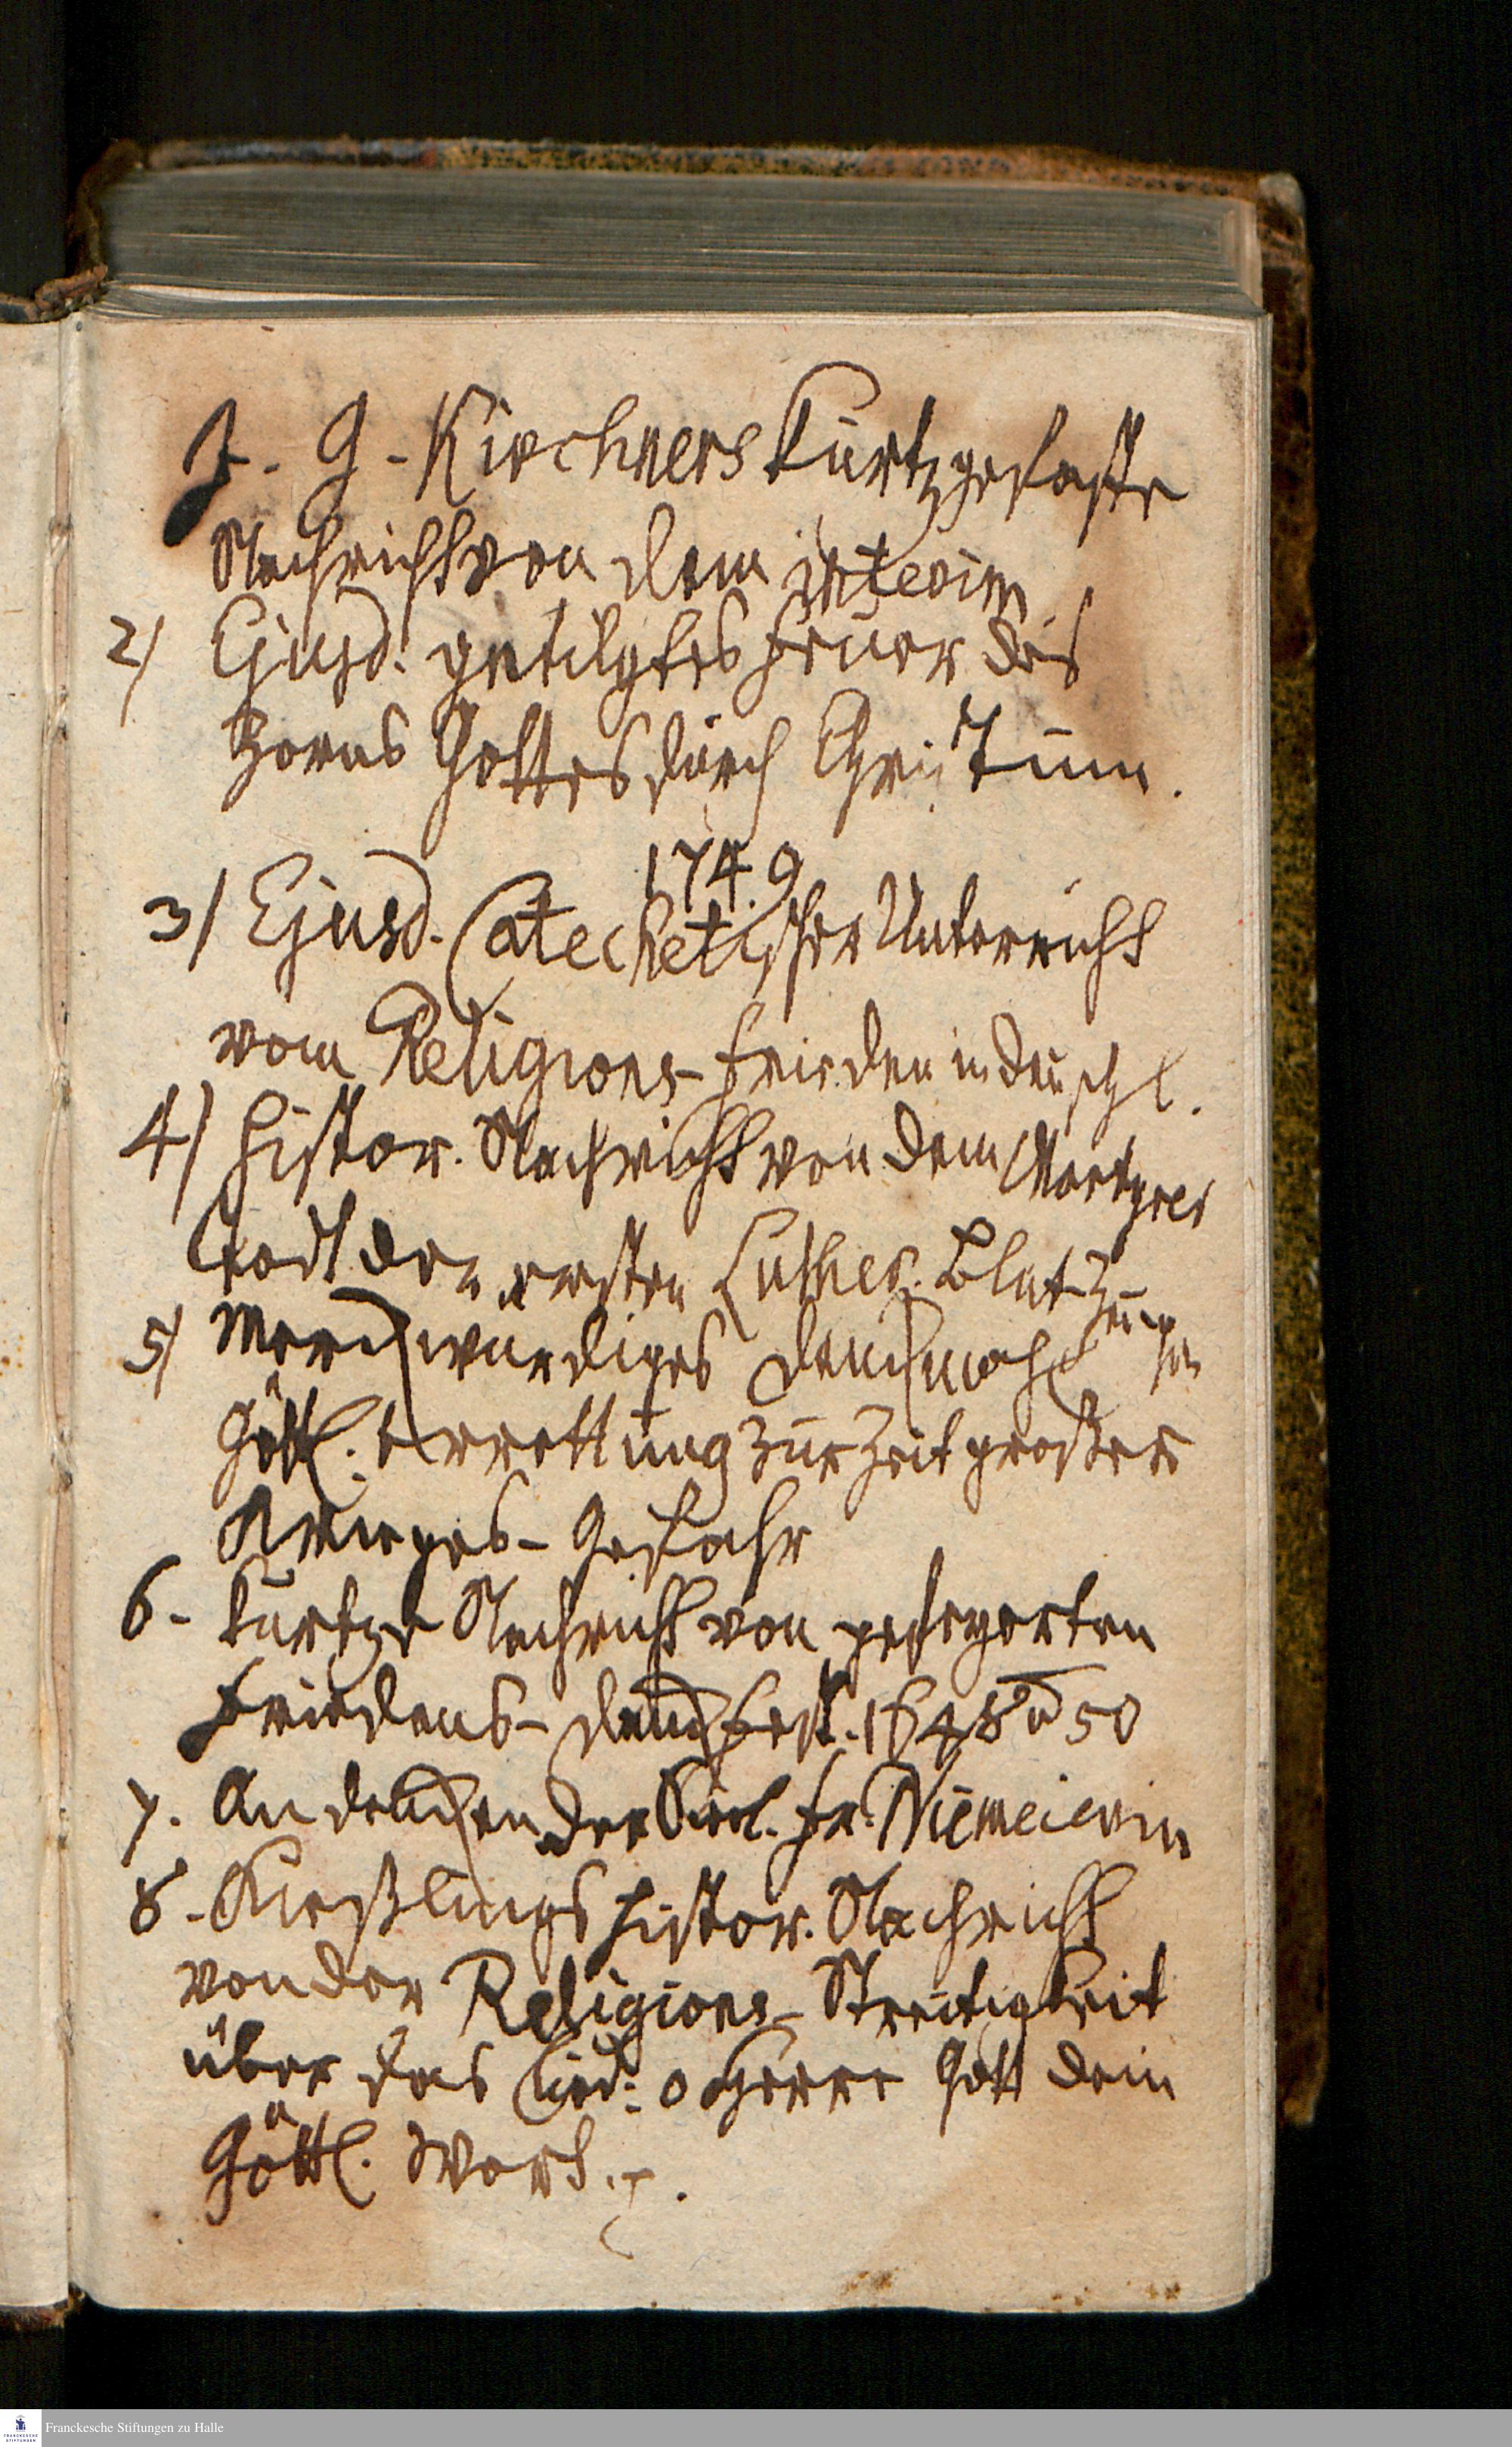 J. G. Kirchners Kurtzgefaste
Nachricht von dem interim
2) Ejusd. getilgtes Feuer des
Zorns Gottes durch Christum.
1749
3) Ejusd. Catechetischer Unterricht
vom Religions-Frieden in Deuschl.
4) Histor. Nachricht von dem Martyrer
todt der ersten Luther. Blut-Zeugen
5) Merckwürdiges Denckmahl
Göttl. Errettung zur Zeit großer
Krieges-Gefahr
6. Kurtze Nachricht von gefeyerten
Friedens-Danckfest. 1648 u 50
7. Andencken der Fr. Niemeierin
8. Kießlings Histor. Nachricht
von der Religions-Streitigkeit
über das Lied: o Herre Gott dein
Göttl. Wort.
Franckesche Stiftungen zu Halle
FRANCKESCHE STIFTUNGEN